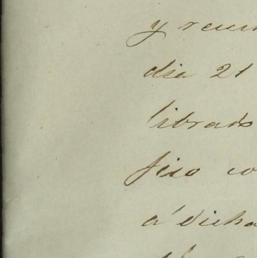 y reun
dia 21
librado
fiso co
á dicha